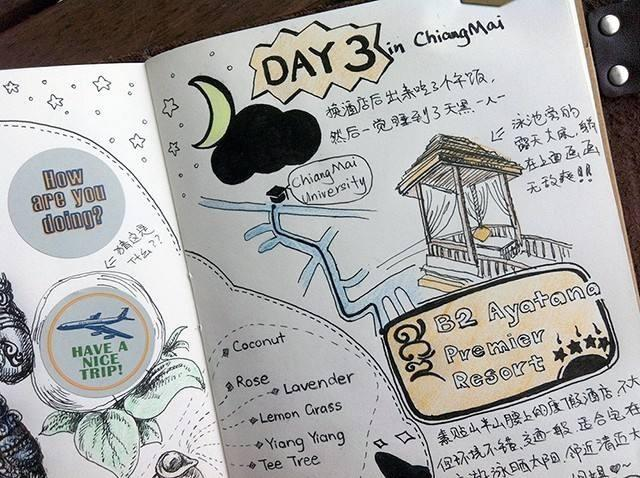 How
are you
doing?
猜这是
什么??
HAVE A
NICE
TRIP!
DAY 3 in ChiangMai
换酒店后出来吃了个午饭,
然后一觉睡到了天黑—人—
ChiangMai
University
泳池旁的
露天大床,躺
在上面画画
无敌爽!!
B2 Ayatana
Premier
Resort
Coconut
Rose
Lavender
Lemon Grass
Yiang Yiang
Tee Tree
素贴山半山腰上的度假酒店,不大
但环境不错,交通一般,适合宅在
游泳晒太阳,邻近清迈大